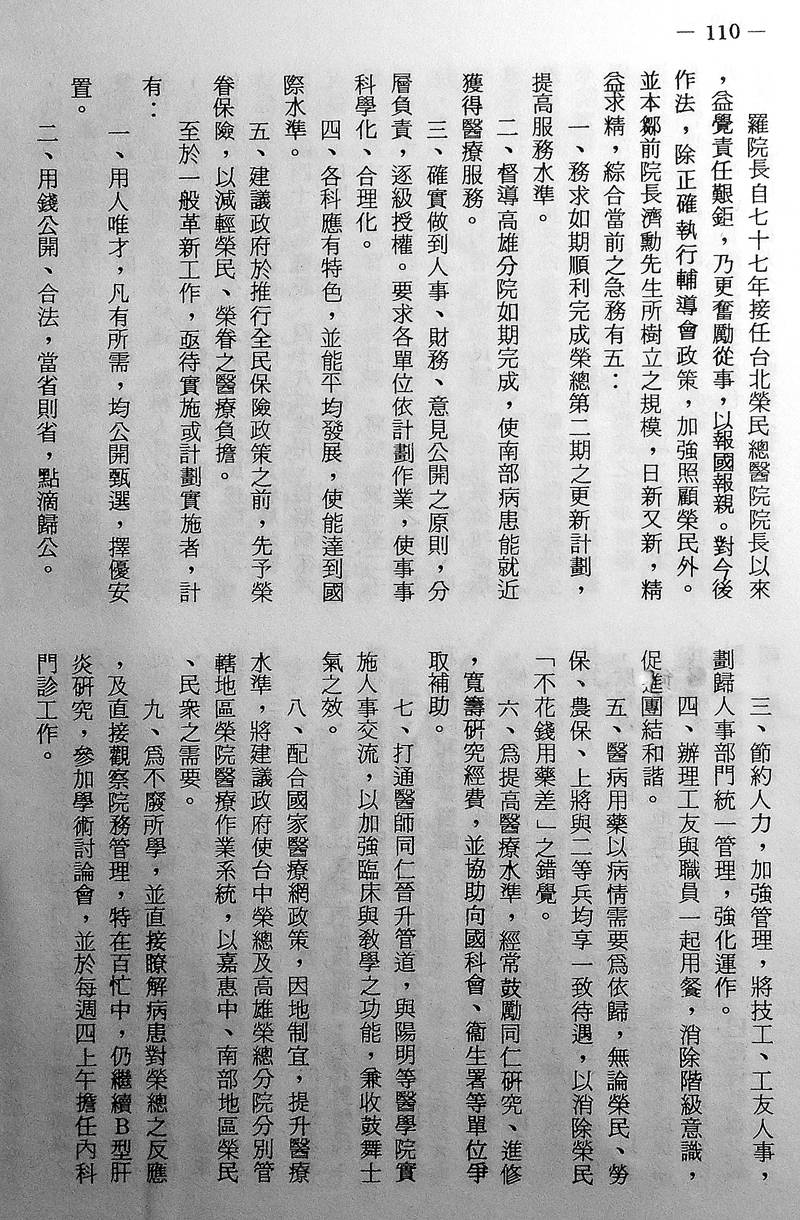 — 110 —
羅院長自七十七年接任台北榮民總醫院院長以來
，益覺責任艱鉅，乃更奮勵從事，以報國報親。對今後
作法，除正確執行輔導會政策，加強照顧榮民外。
並本鄒前院長濟勳先生所樹立之規模，日新又新，精
益求精，綜合當前之急務有五：
一、務求如期順利完成榮總第二期之更新計劃，
提高服務水準。
二、督導高雄分院如期完成，使南部病患能就近
獲得醫療服務。
三、確實做到人事、財務、意見公開之原則，分
層負責，逐級授權。要求各單位依計劃作業，使事事
科學化、合理化。
四、各科應有特色，並能平均發展，使能達到國
際水準。
五、建議政府於推行全民保險政策之前，先予榮
眷保險，以減輕榮民、榮眷之醫療負擔。
至於一般革新工作，亟待實施或計劃實施者，計
有：
一、用人唯才，凡有所需，均公開甄選，擇優安
置。
二、用錢公開、合法，當省則省，點滴歸公。
三、節約人力，加強管理，將技工、工友人事，
劃歸人事部門統一管理，強化運作。
四、辦理工友與職員一起用餐，消除階級意識，
促進團結和諧。
五、醫病用藥以病情需要爲依歸，無論榮民、勞
保、農保、上將與二等兵均享一致待遇，以消除榮民
「不花錢用藥差」之錯覺。
六、爲提高醫療水準，經常鼓勵同仁研究、進修
，寬籌研究經費，並協助向國科會、衞生署等單位爭
取補助。
七、打通醫師同仁晉升管道，與陽明等醫學院實
施人事交流，以加強臨床與教學之功能，兼收鼓舞士
氣之效。
八、配合國家醫療網政策，因地制宜，提升醫療
水準，將建議政府使台中榮總及高雄榮總分院分別管
轄地區榮院醫療作業系統，以嘉惠中、南部地區榮民
、民衆之需要。
九、爲不廢所學，並直接瞭解病患對榮總之反應
，及直接觀察院務管理，特在百忙中，仍繼續B型肝
炎研究，參加學術討論會，並於每週四上午擔任內科
門診工作。